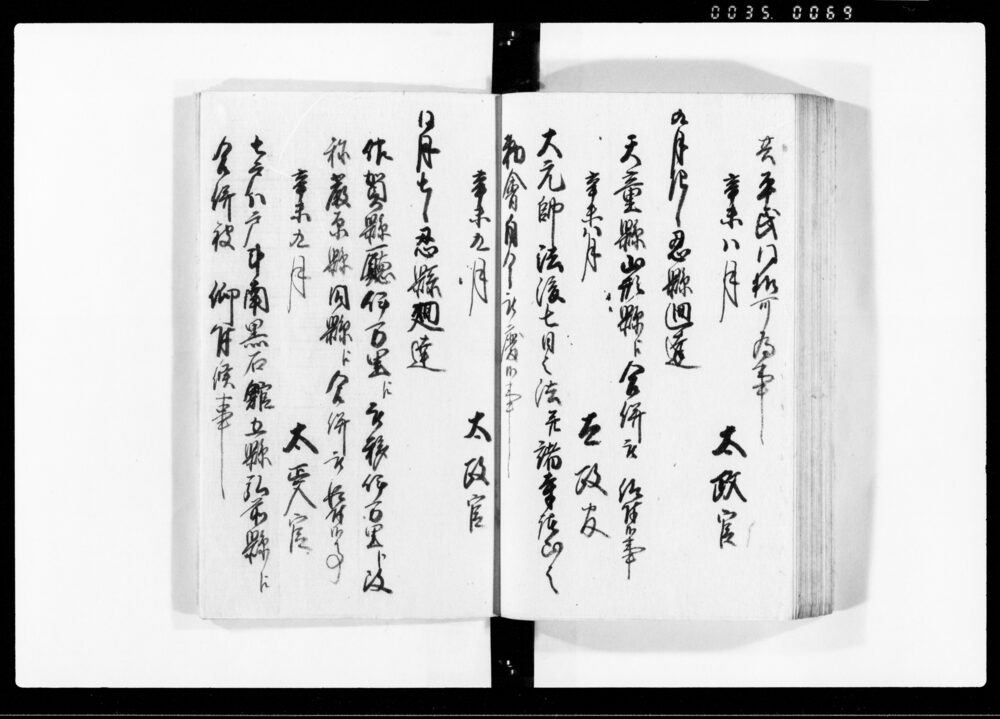 0035 0069
共平民同様可為事
辛未八月
太政官
九月 忍縣廻達
天童縣山形縣ニ合併被 仰付候事
辛未八月
太政官
大元帥法後七日之法并諸寺諸山之
勅會自今被廃候事
辛未九月
太政官
同月七日忍縣廻達
佐賀縣廳伊万里ニ被移伊万里ト改
称厳原縣同縣ニ合併被 仰付候事
辛未九月
太政官
七戸八戸斗南黒石館五縣弘前縣ニ
合併被 仰付候事